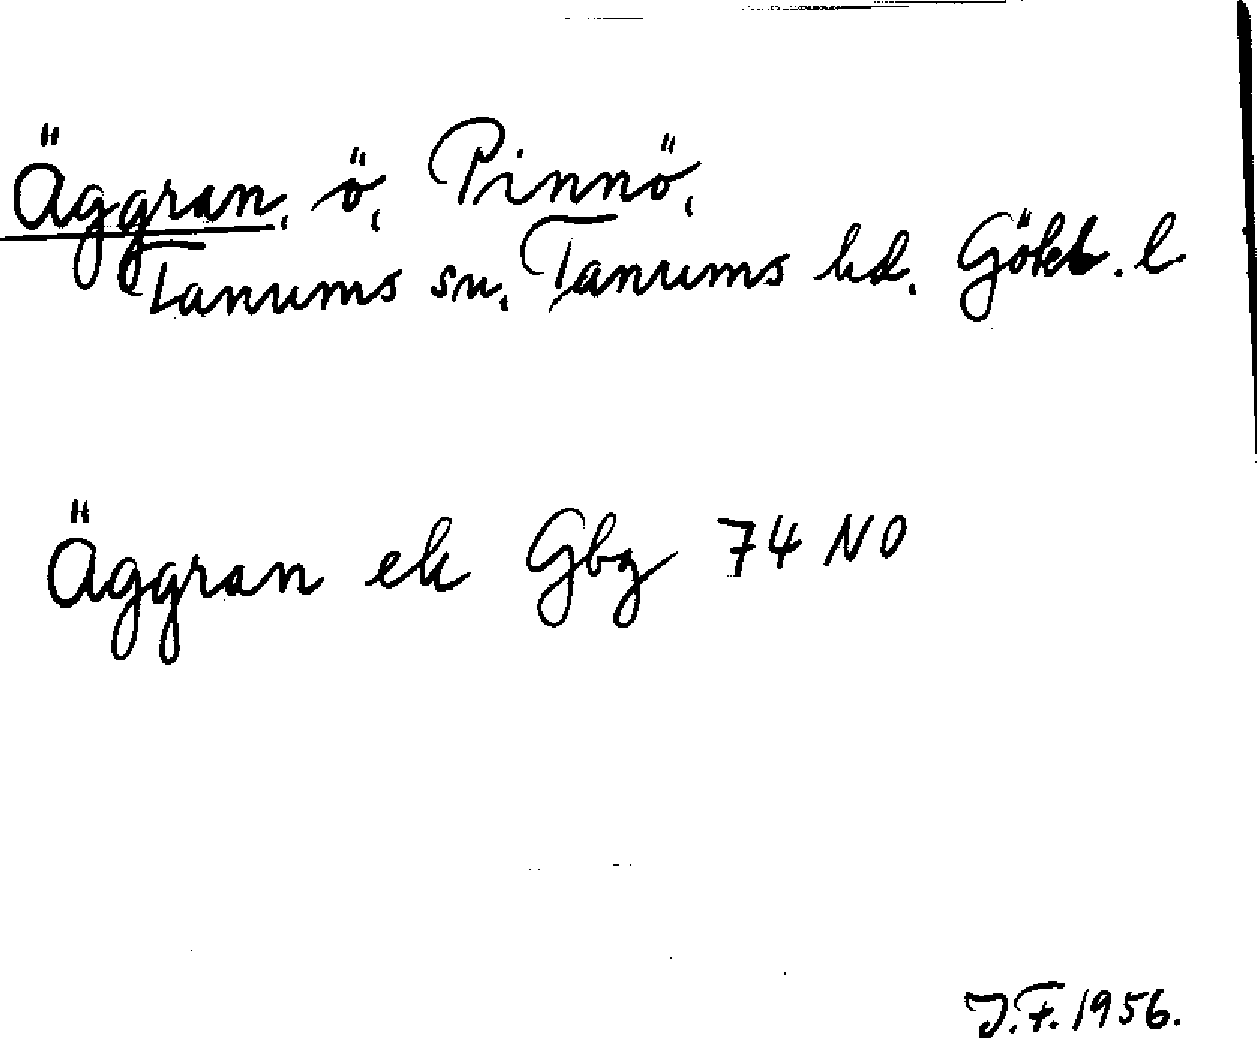 Äggran, ö, Pinnö,
Tanums sn, Tanums hd. Gökb. l
Äggran ek Gbg 74 NO
J.F. 1956.